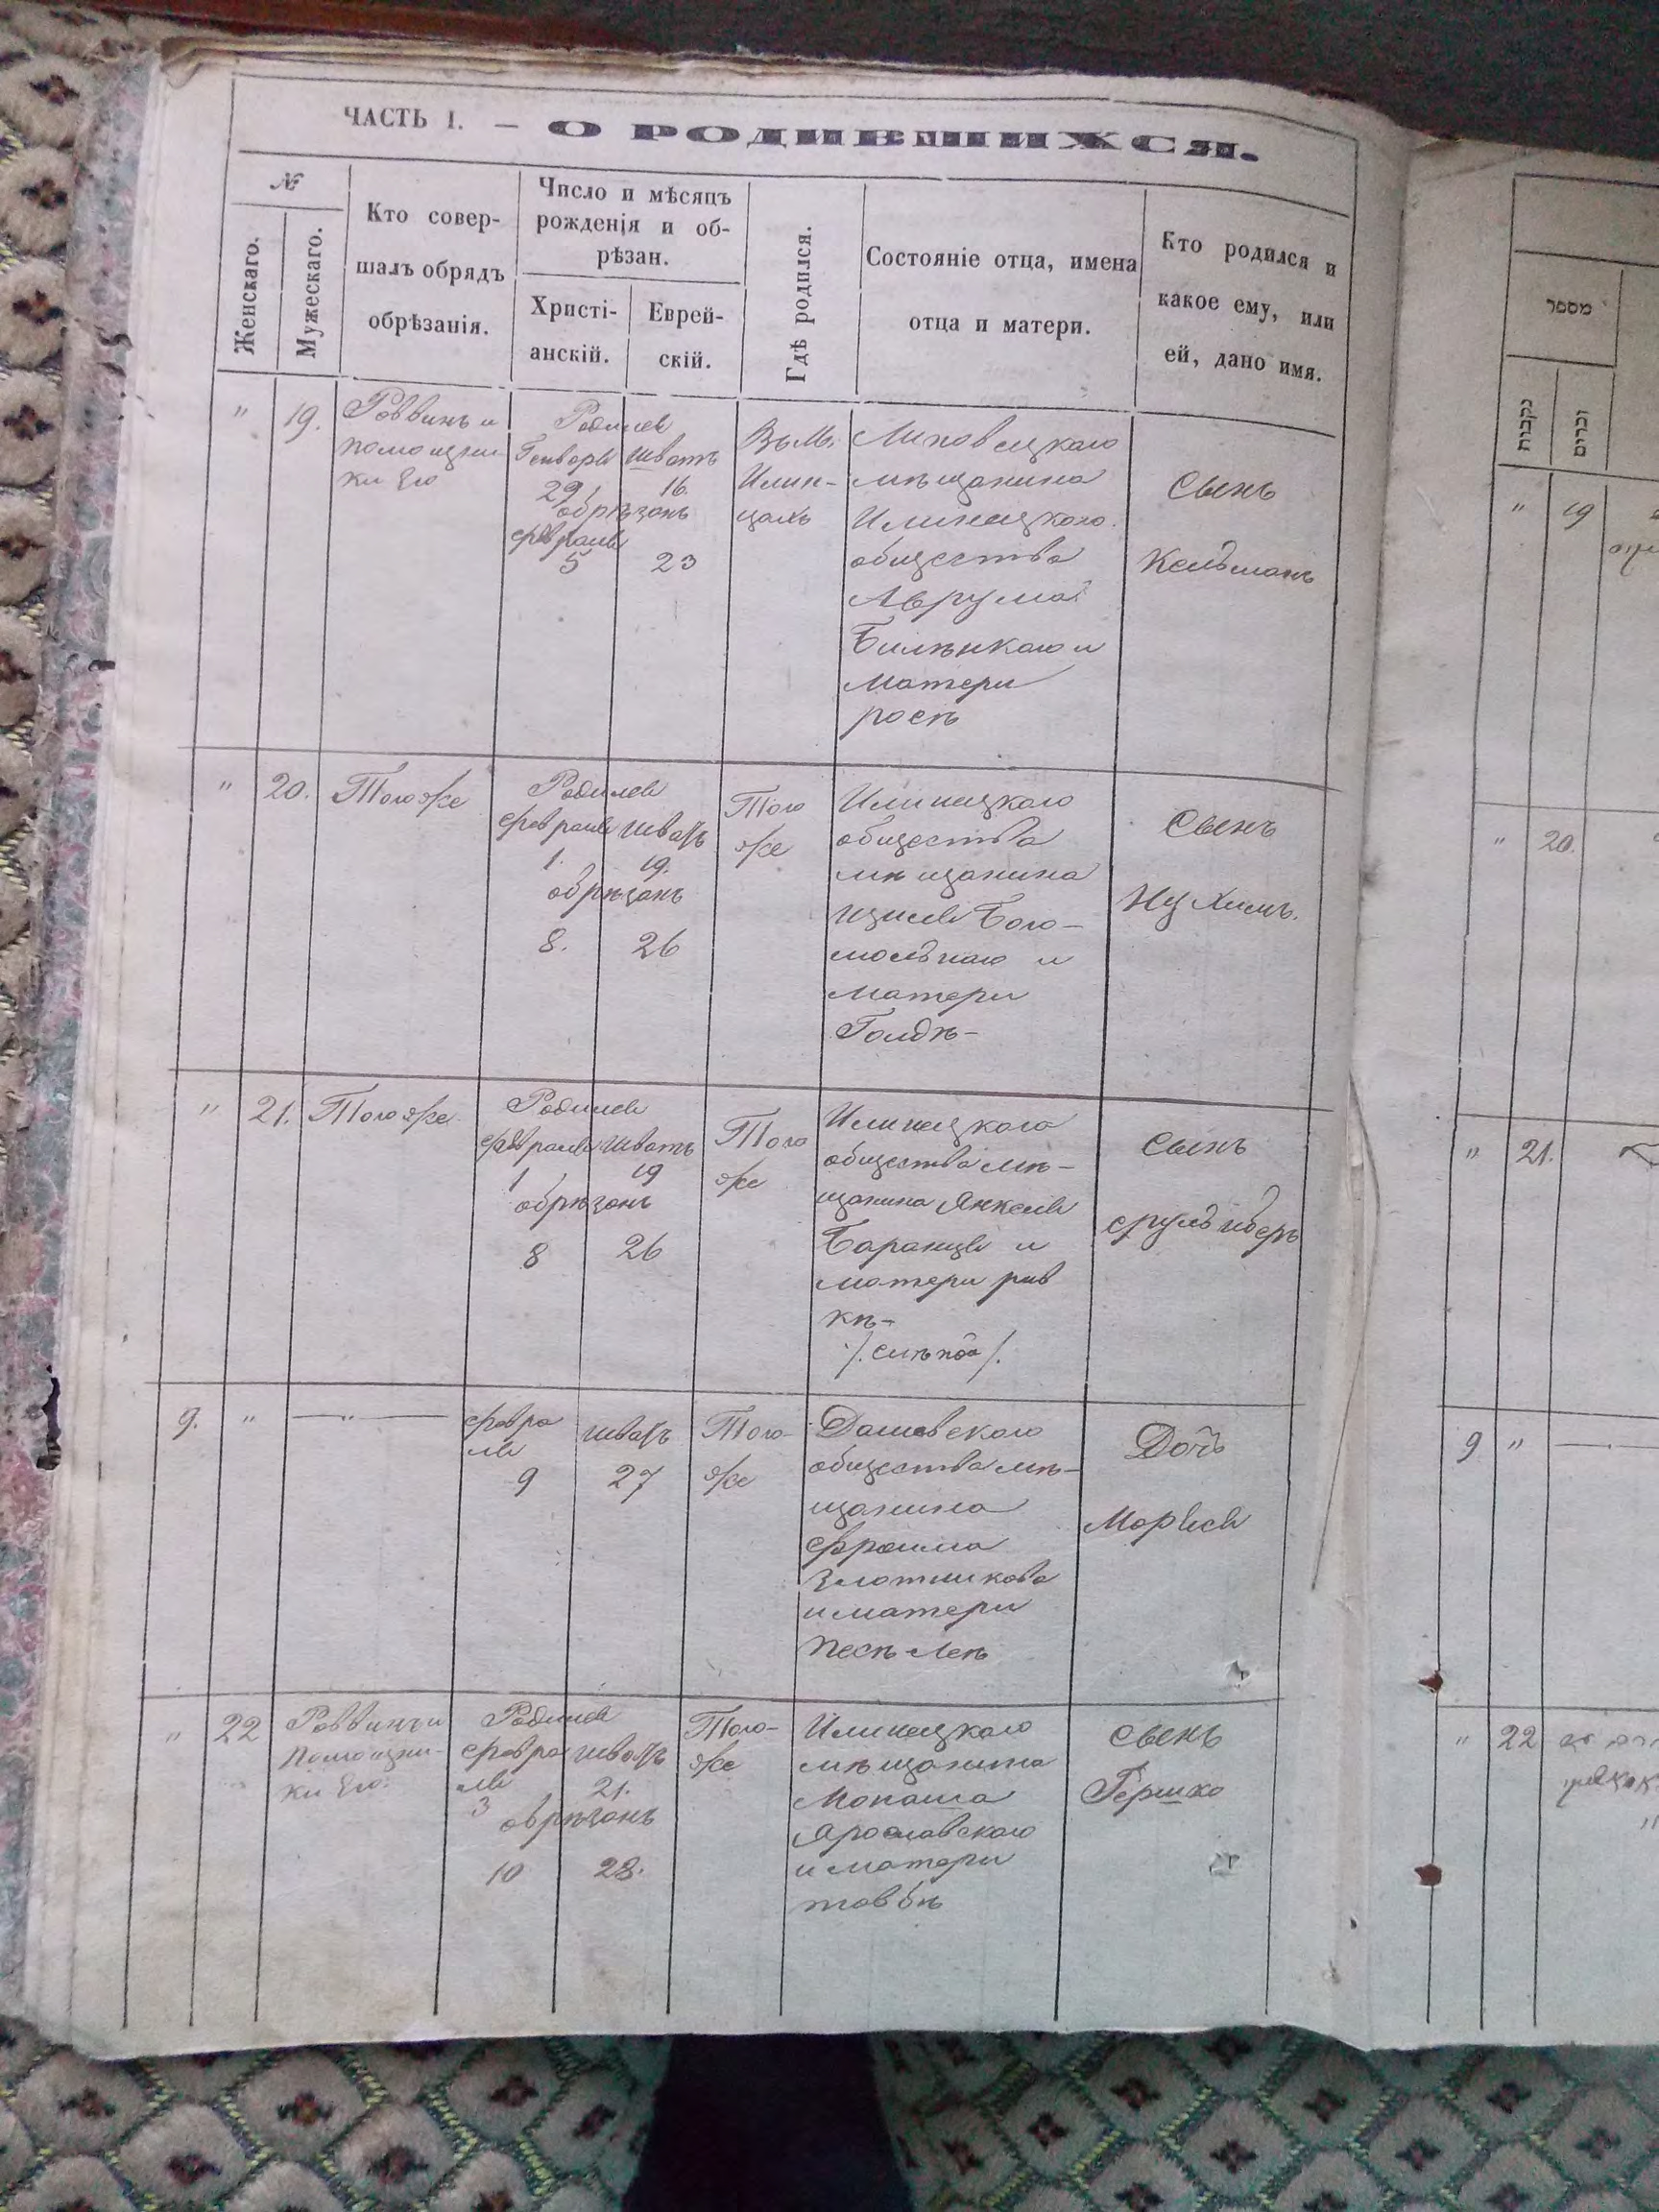 ЧАСТЬ I. — О РОДИВШИХСЯ.
№
Женскаго.
Мужескаго.
Кто совер-
шалъ обрядъ
обрѣзанія.
Число и мѣсяцъ
рожденія и об-
рѣзан.
Христі-
анскій.
Еврей-
скій.
Гдѣ родился.
Состояніе отца, имена
отца и матери.
Кто родился и
какое ему, или
ей, дано имя.
" 19.
Раввинъ и
помощни-
ки Его
Родился
Генваря Шватъ
29 16.
обрѣзанъ
февраля
5 23
Въ М.
Илин-
цахъ
Липовецкаго
мѣщанина
Илинецкаго
общества
Аврума
Билѣнкаго и
матери
росѣ
Сынъ
Кельманъ
" 20.
Того же
Родился
февраля шватъ
1. 19.
обрѣзанъ
8. 26
Того
же
Илинецкаго
общества
мѣщанина
Ицися Бого-
мольнаго и
матери
Голдѣ-
Сынъ
Нухимъ.
" 21.
Того же
Родился
февраля шватъ
1 19
обрѣзанъ
8 26
Того
же
Илинецкаго
общества мѣ-
щанина Янкеля
Баранця и
матери рив
кѣ-
Сынъ
срулъ иберъ
9. " — " —
февра
ля шватъ
9 27
Того-
же
Дашевскаго
общества мѣ-
щанина
Фроима
Злотникова
и матери
Песѣ Леѣ
Дочь
Марьяся
" 22
Раввинъ и
помощни-
ки Его.
Родился
февра шватъ
ля 21.
3
обрѣзанъ
10 28.
Того-
же
Илинецкаго
мѣщанина
Манаша
Ярославскаго
и матери
товбѣ
сынъ
Гершко
מספר
נקבות
זכרים
" 19
" 20.
" 21.
9 " —
" 22